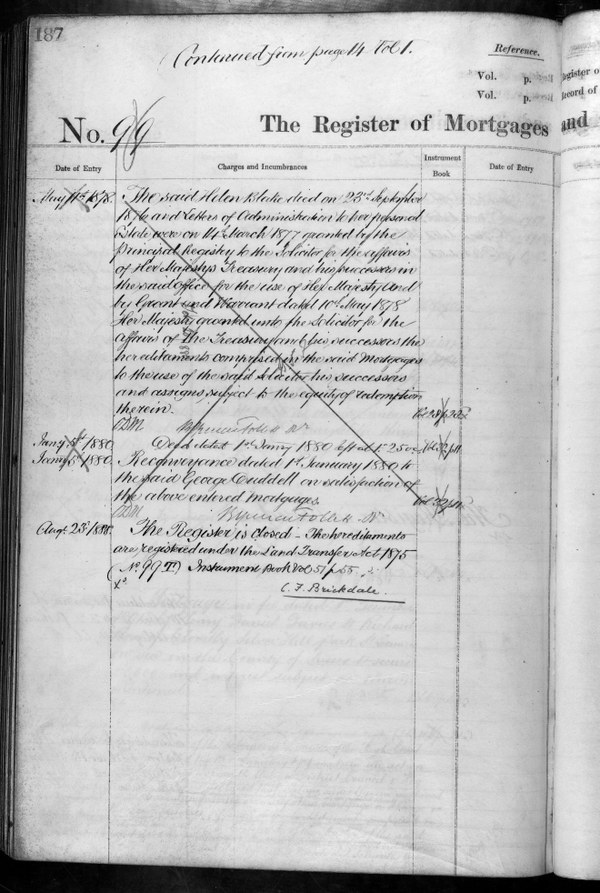 187
Continued from page 14 Vol 1.
Reference.
Vol. p.
Vol. p.
No. 969 The Register of Mortgages and
Date of Entry
Charges and Incumbrances
Instrument Book
Date of Entry
May 11th 1878. The said Helen Blake died on 23rd September
1876 and Letters of Administration to her personal
Estate were on 14 March 1877 granted by the
Principal Registry to the Solicitor for the affairs
of Her Majestys Treasury and his successors in
the said Office for the use of Her Majesty and
by Grant and Warrant dated 10th May 1878
Her Majesty granted unto the Solicitor for the
affairs of the Treasury and his successors the
hereditaments comprised in the said Mortgages
to the use of the said Solicitor his successors
and assigns subject to the equity of redemption
therein.
Jany 5th 1880. Deed dated 1st Janry 1880 left at 1.25
Janry 5th 1880. Reconveyance dated 1st January 1880 to
the said George Cuddell on satisfaction of
the above entered Mortgages
Augt 23rd The Register is closed – The hereditaments
are registered under the Land Transfer Act 1875
(No. 99 ) Instrument Book Vol 51 p 55
C. F. Brickdale.